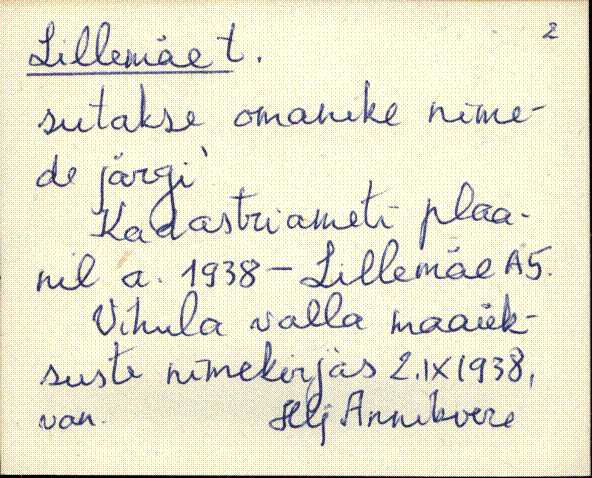 2
Lillemäe t.
sutakse omanike nime-
de järgi
Kadastriameti plaa-
nil a. 1938 - Lillemäe A5.
Vihula valla maaük-
suste nimekirjas 2.IX 1938,
van. Hlj Annikvere